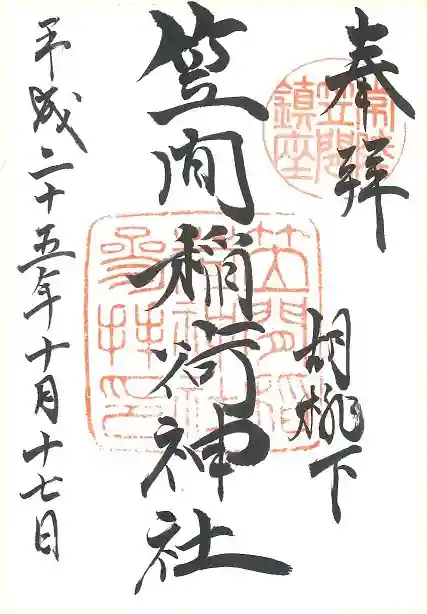 奉拝
常陸
笠間
鎮座
胡桃下
笠間稲荷神社
笠間稲
荷神社
参拝印
平成二十五年十月十七日